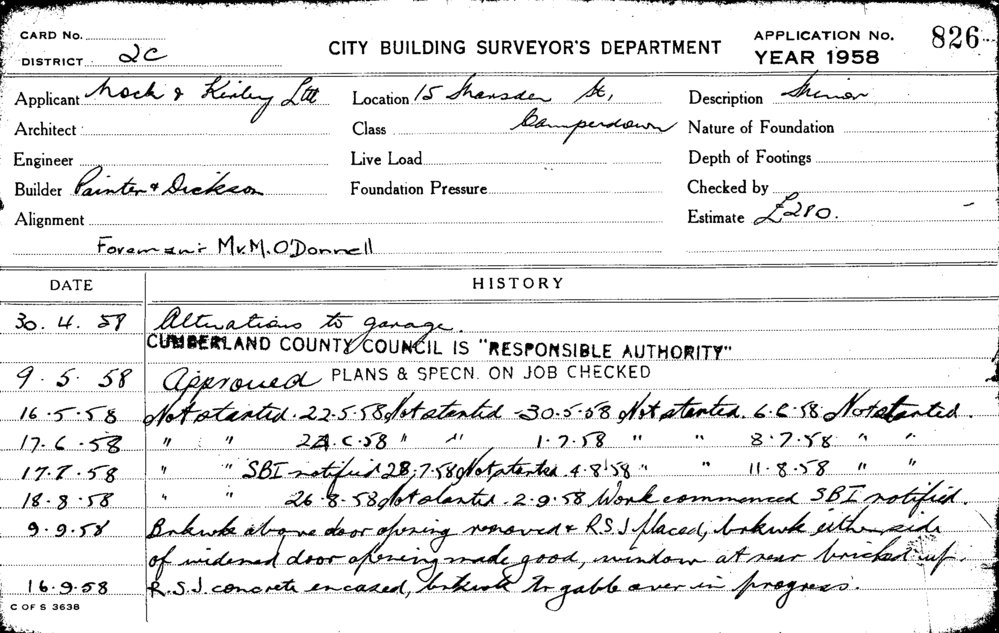 CARD No.
DISTRICT 2C
CITY BUILDING SURVEYOR'S DEPARTMENT
APPLICATION No. 826
YEAR 1958
Applicant Nock & Kirby Ltd Location 15 Marsden St, Description Minor
Architect Class Camperdown Nature of Foundation
Engineer Live Load Depth of Footings
Builder Painter & Dickson Foundation Pressure Checked by
Alignment Estimate £280. –
Foreman:- Mr. M. O'Donnell
DATE HISTORY
30. 4. 58 Alterations to garage.
CUMBERLAND COUNTY COUNCIL IS "RESPONSIBLE AUTHORITY"
9. 5. 58 Approved PLANS & SPECN. ON JOB CHECKED
16. 5. 58 Not started. 22.5.58 Not started - 30.5.58 Not started. 6.6.58 Not started.
17. 6. 58 " " 24.6.58 " " 1.7.58 " " 8.7.58 " "
17. 7. 58 " " SBI notified 28.7.58 Not started 4.8.58 " " 11.8.58 " "
18. 8. 58 " " 26.8.58 Not started. 2.9.58 Work commenced SBI notified.
9. 9. 58 Brkwk above door opening removed & R.S.J placed, brkwk either side
of widened door opening made good, window at rear bricked up.
16. 9. 58 R.S.J. concrete encased, brkwk to gable over in progress.
C OF S 3638